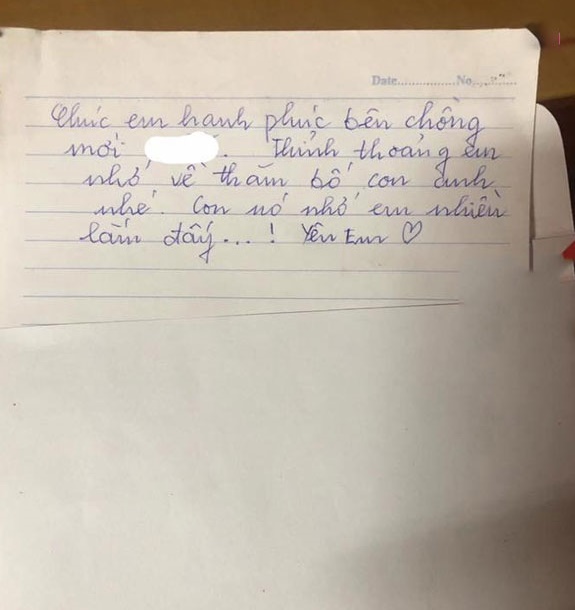 Date................No..........
Chúc em hạnh phúc bên chồng
mới . Thỉnh thoảng em
nhớ về thăm bố con anh
nhé. Con nó nhớ em nhiều
lắm đấy...! Yêu Em ♡